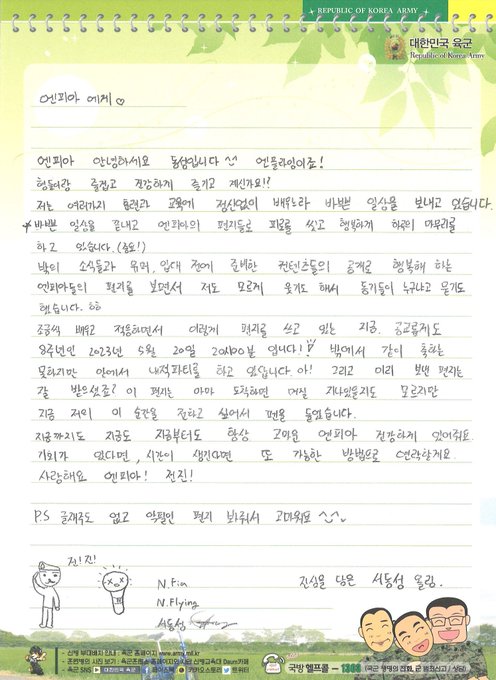 REPUBLIC OF KOREA ARMY
대한민국 육군
Republic of Korea Army
엔피아 에게 ♡
엔피아 안녕하세요 동성입니다 ^^ 엔플라잉이죠!
형들이랑 즐겁고 건강하게 즐기고 계신가요!?
저는 여러가지 훈련과 교육에 정신없이 배우느라 바쁜 일상을 보내고 있습니다.
*바쁜 일상을 끝내고 엔피아의 편지들로 피로를 씻고 행복하게 하루의 마무리를
하고 있습니다.(중요!)
밖의 소식들과 유머, 입대 전에 준비한 컨텐츠들의 공개로 행복해 하는
엔피아들의 편지를 보면서 저도 모르게 웃기도 해서 동기들이 누구냐고 묻기도
했습니다. ㅎㅎ
조금씩 배우고 적응하면서 이렇게 편지를 쓰고 있는 지금. 공교롭게도
8주년인 2023년 5월 20일 20시00분 입니다! 밖에서 같이 축하는
못하지만 안에서 내적파티를 하고 있습니다. 아! 그리고 미리 보낸 편지는
잘 받으셨죠? 이 편지는 아마 도착하면 며칠 지나있을지도 모르지만
지금 저의 이 순간을 전하고 싶어서 펜을 들었습니다.
지금까지도 지금도 지금부터도 항상 고마운 엔피아 건강하게 있어줘요.
기회가 있다면, 시간이 생긴다면 또 가능한 방법으로 연락할게요.
사랑해요 엔피아! 전진!
P.S 글재주도 없고 악필인 편지 봐줘서 고마워요 ^^
전!진!
N.Fia
N.Flying
서동성
진심을 담은 서동성 올림.
신병 부대배치 안내 : 육군 홈페이지 www.army.mil.kr
훈련병의 사진 보기 : 육군훈련소 홈페이지 및 신병교육대 Daum카페
육군 SNS 대한민국 육군 페이스북 카카오스토리 트위터
국방헬프콜 - 1303 (국군 장병의 전화, 군 범죄신고 / 상담)